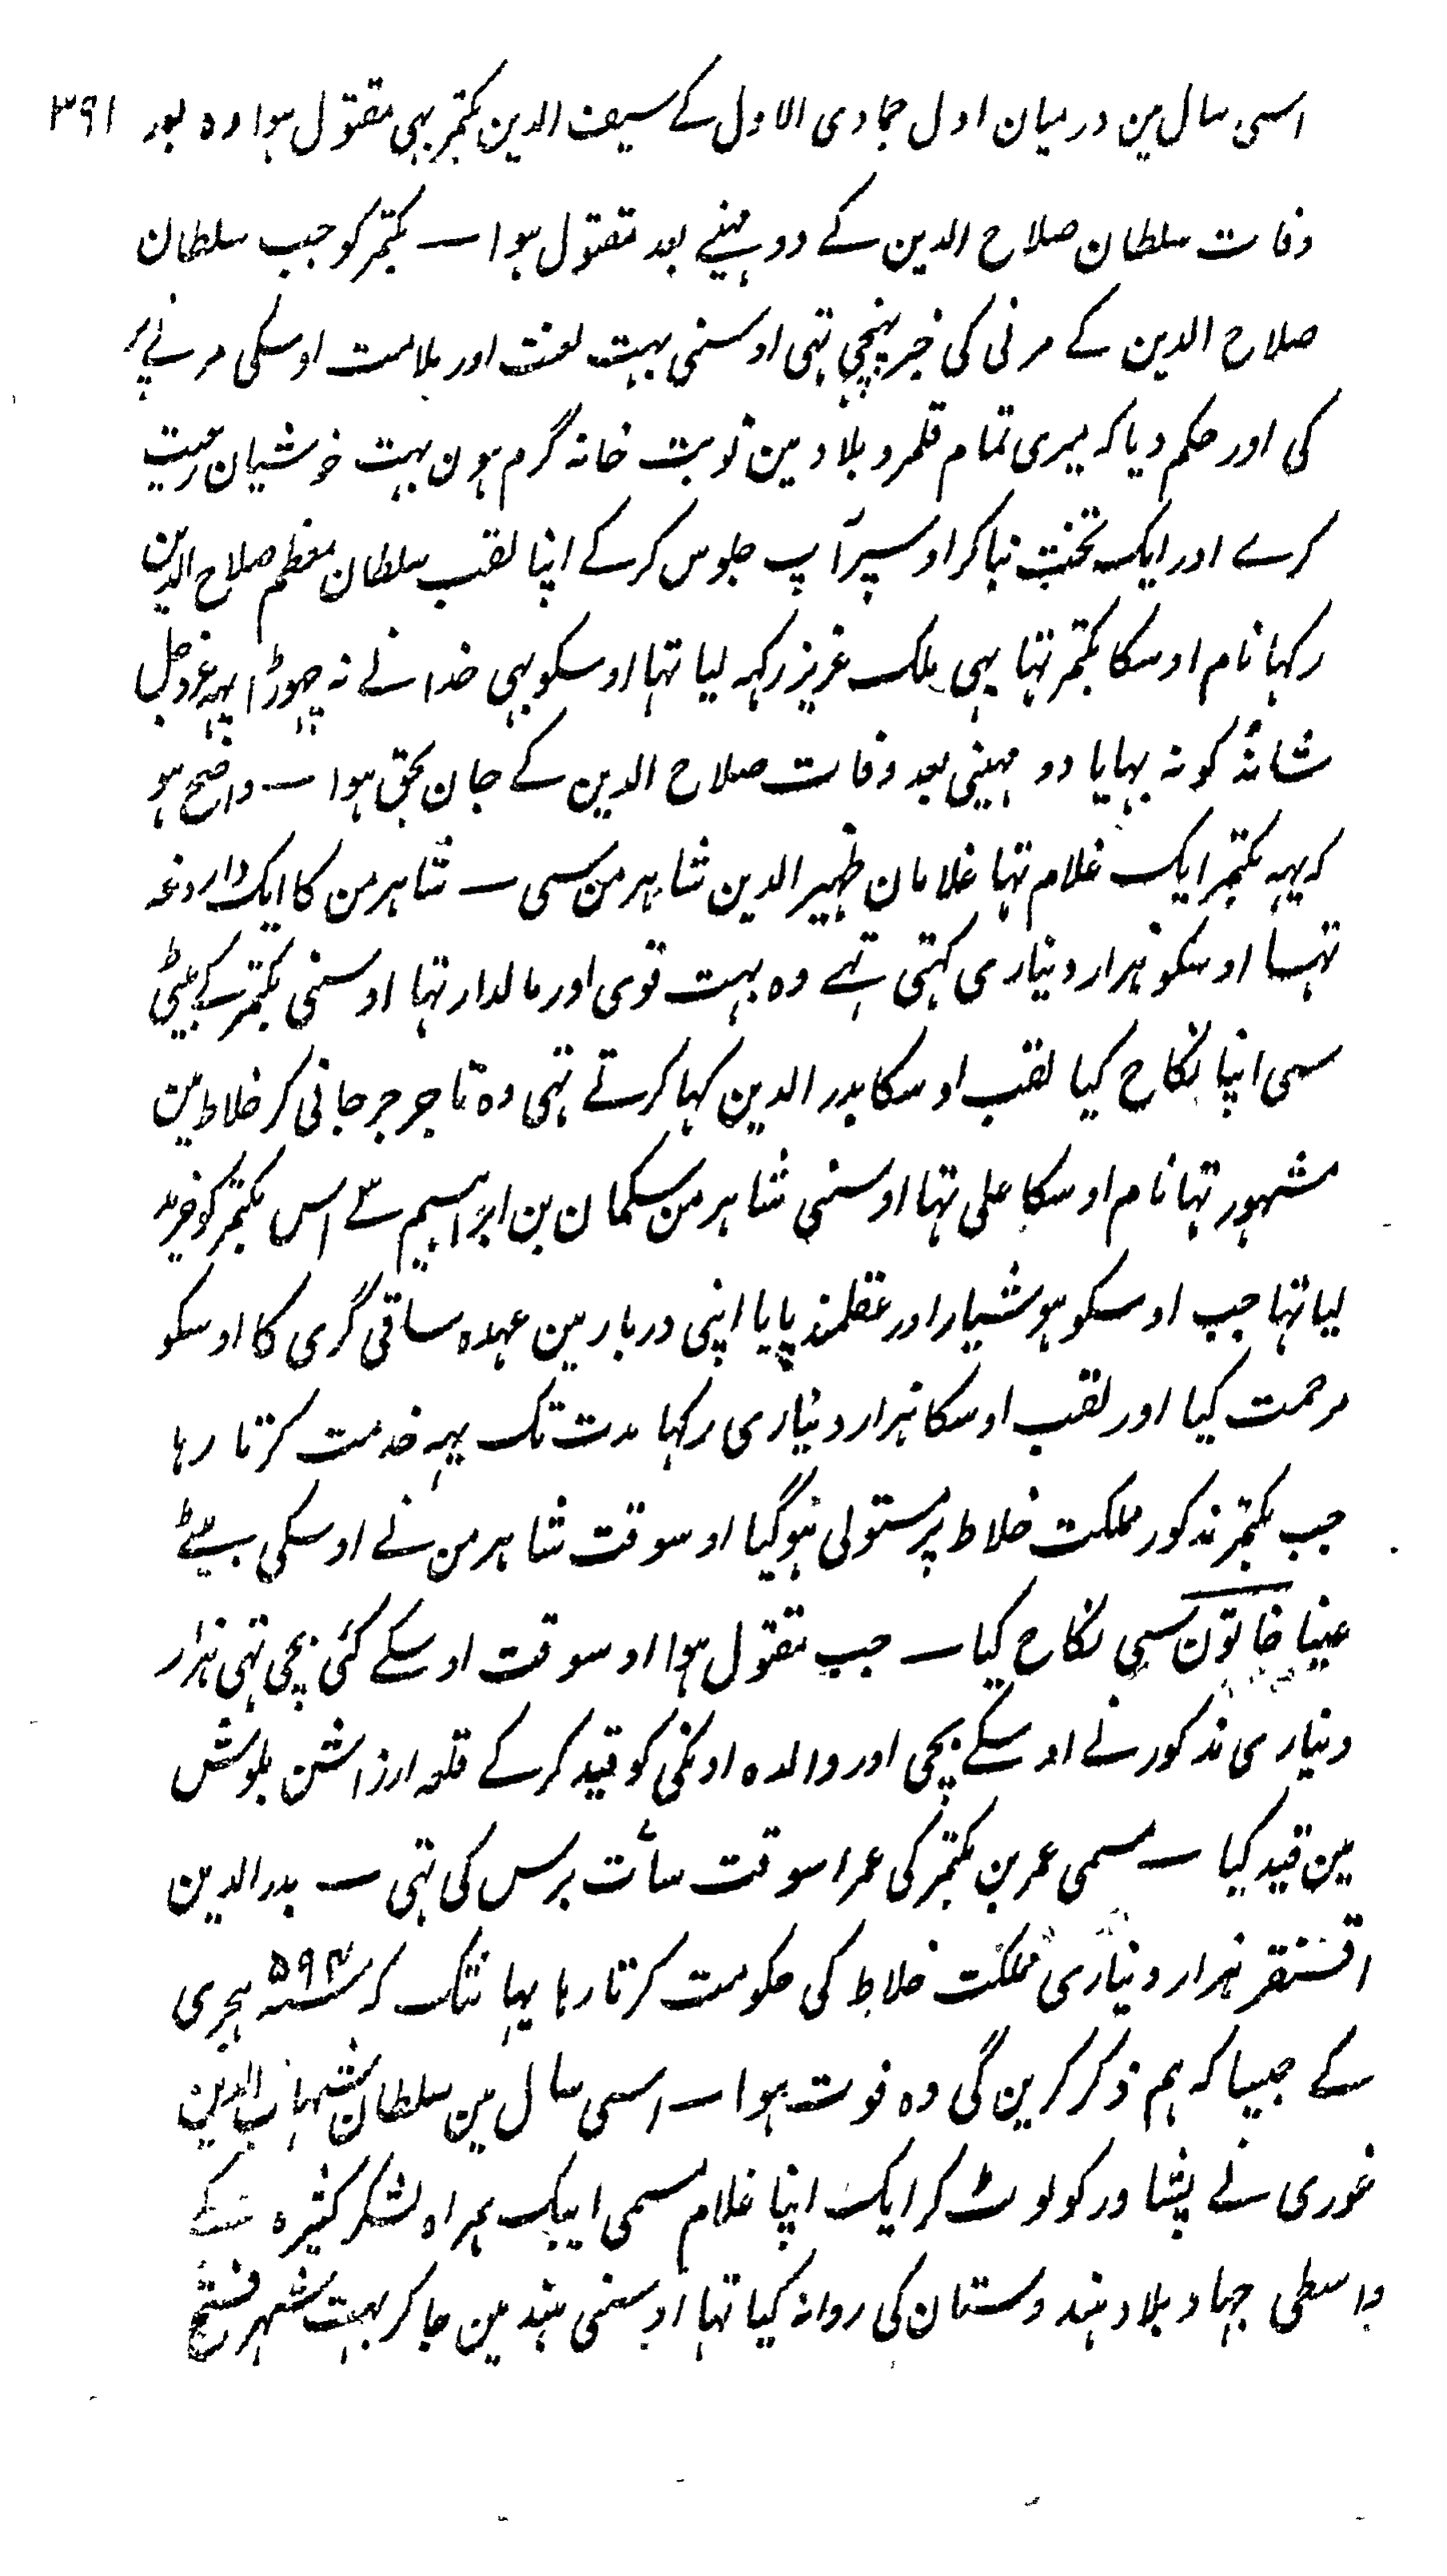 اسی سال مین درمیان اول جمادی الاول کے سیف الدین بکتمر بہی مقتول ہوا وہ بعد ۳۹۱
وفات سلطان صلاح الدین کے دو مہینے بعد مقتول ہوا ــ بکتمر کو جب سلطان
صلاح الدین کے مرنی کی خبر پہنچی تہی اوسنی بہت لعنت اور ملامت اوسکی مرنے پر
کی اور حکم دیا کہ میری تمام قلمرو بلاد مین نوبت خانہ گرم ہون بہت خوشیان رعیت
کرے اور ایک تخت بناکر اوسپر آپ جلوس کرکے اپنا لقب سلطان معظم صلاح الدین
رکہا نام اوسکا بکتمر تہا یہی ملک عزیز رکہہ لیا تہا اوسکو بہی خدا نے نہ چہوڑا یہہ عزوجل
شانہٗ کو نہ بہایا دو مہینی بعد وفات صلاح الدین کے جان بحق ہوا ــ واضح ہو
کہ یہہ بکتمر ایک غلام تہا غلامان ظہیر الدین شاہرمن سی ــ شاہرمن کا ایک داروغہ
تہا اوسکو ہزار دیناری کہتی تہے وہ بہت قوی اور مالدار تہا اوسنی بکتمر کے بیٹی
سی اپنا نکاح کیا لقب اوسکا بدر الدین کہا کرتے تہی وہ تاجر جرجانی کر خلاط مین
مشہور تہا نام اوسکا علی تہا اوسنی شاہرمن سکمان بن ابراہیم سے اس بکتمر کو خرید
لیا تہا جب اوسکو ہوشیار اور عقلمند پایا اپنی دربار مین عہدہ ساقی گری کا اوسکو
مرحمت کیا اور لقب اوسکا ہزار دیناری رکہا مدت تک یہہ خدمت کرتا رہا
جب بکتمر مذکور مملکت خلاط پر مستولی ہوگیا اوسوقت شاہرمن نے اوسکی بیٹے
عینا خاتون سی نکاح کیا ــ جب مقتول ہوا اوسوقت اوسکے کئی بچی تہی ہزار
دیناری مذکور نے اوسکے بچی اور والدہ اونکی کو قید کرکے قلعہ ارزاشن بلوش
مین قید کیا ــ مسمی عمر بن بکتمر کی عمر اسوقت سات برس کی تہی ــ بدر الدین
اقسنقر ہزار دیناری مملکت خلاط کی حکومت کرتا رہا یہانتک کہ ۵۹۴ سنہ ہجری
کے جیسا کہ ہم ذکر کرین گی وہ فوت ہوا ــ اسی سال مین سلطان شہاب الدین
غوری نے پشاور کو لوٹ کر ایک اپنا غلام مسمی ایبک ہمراہ لشکر کثیرہ کے
واسطی جہاد بلاد ہندوستان کی روانہ کیا تہا اوسنی ہند مین جاکر بہت شہر فتح